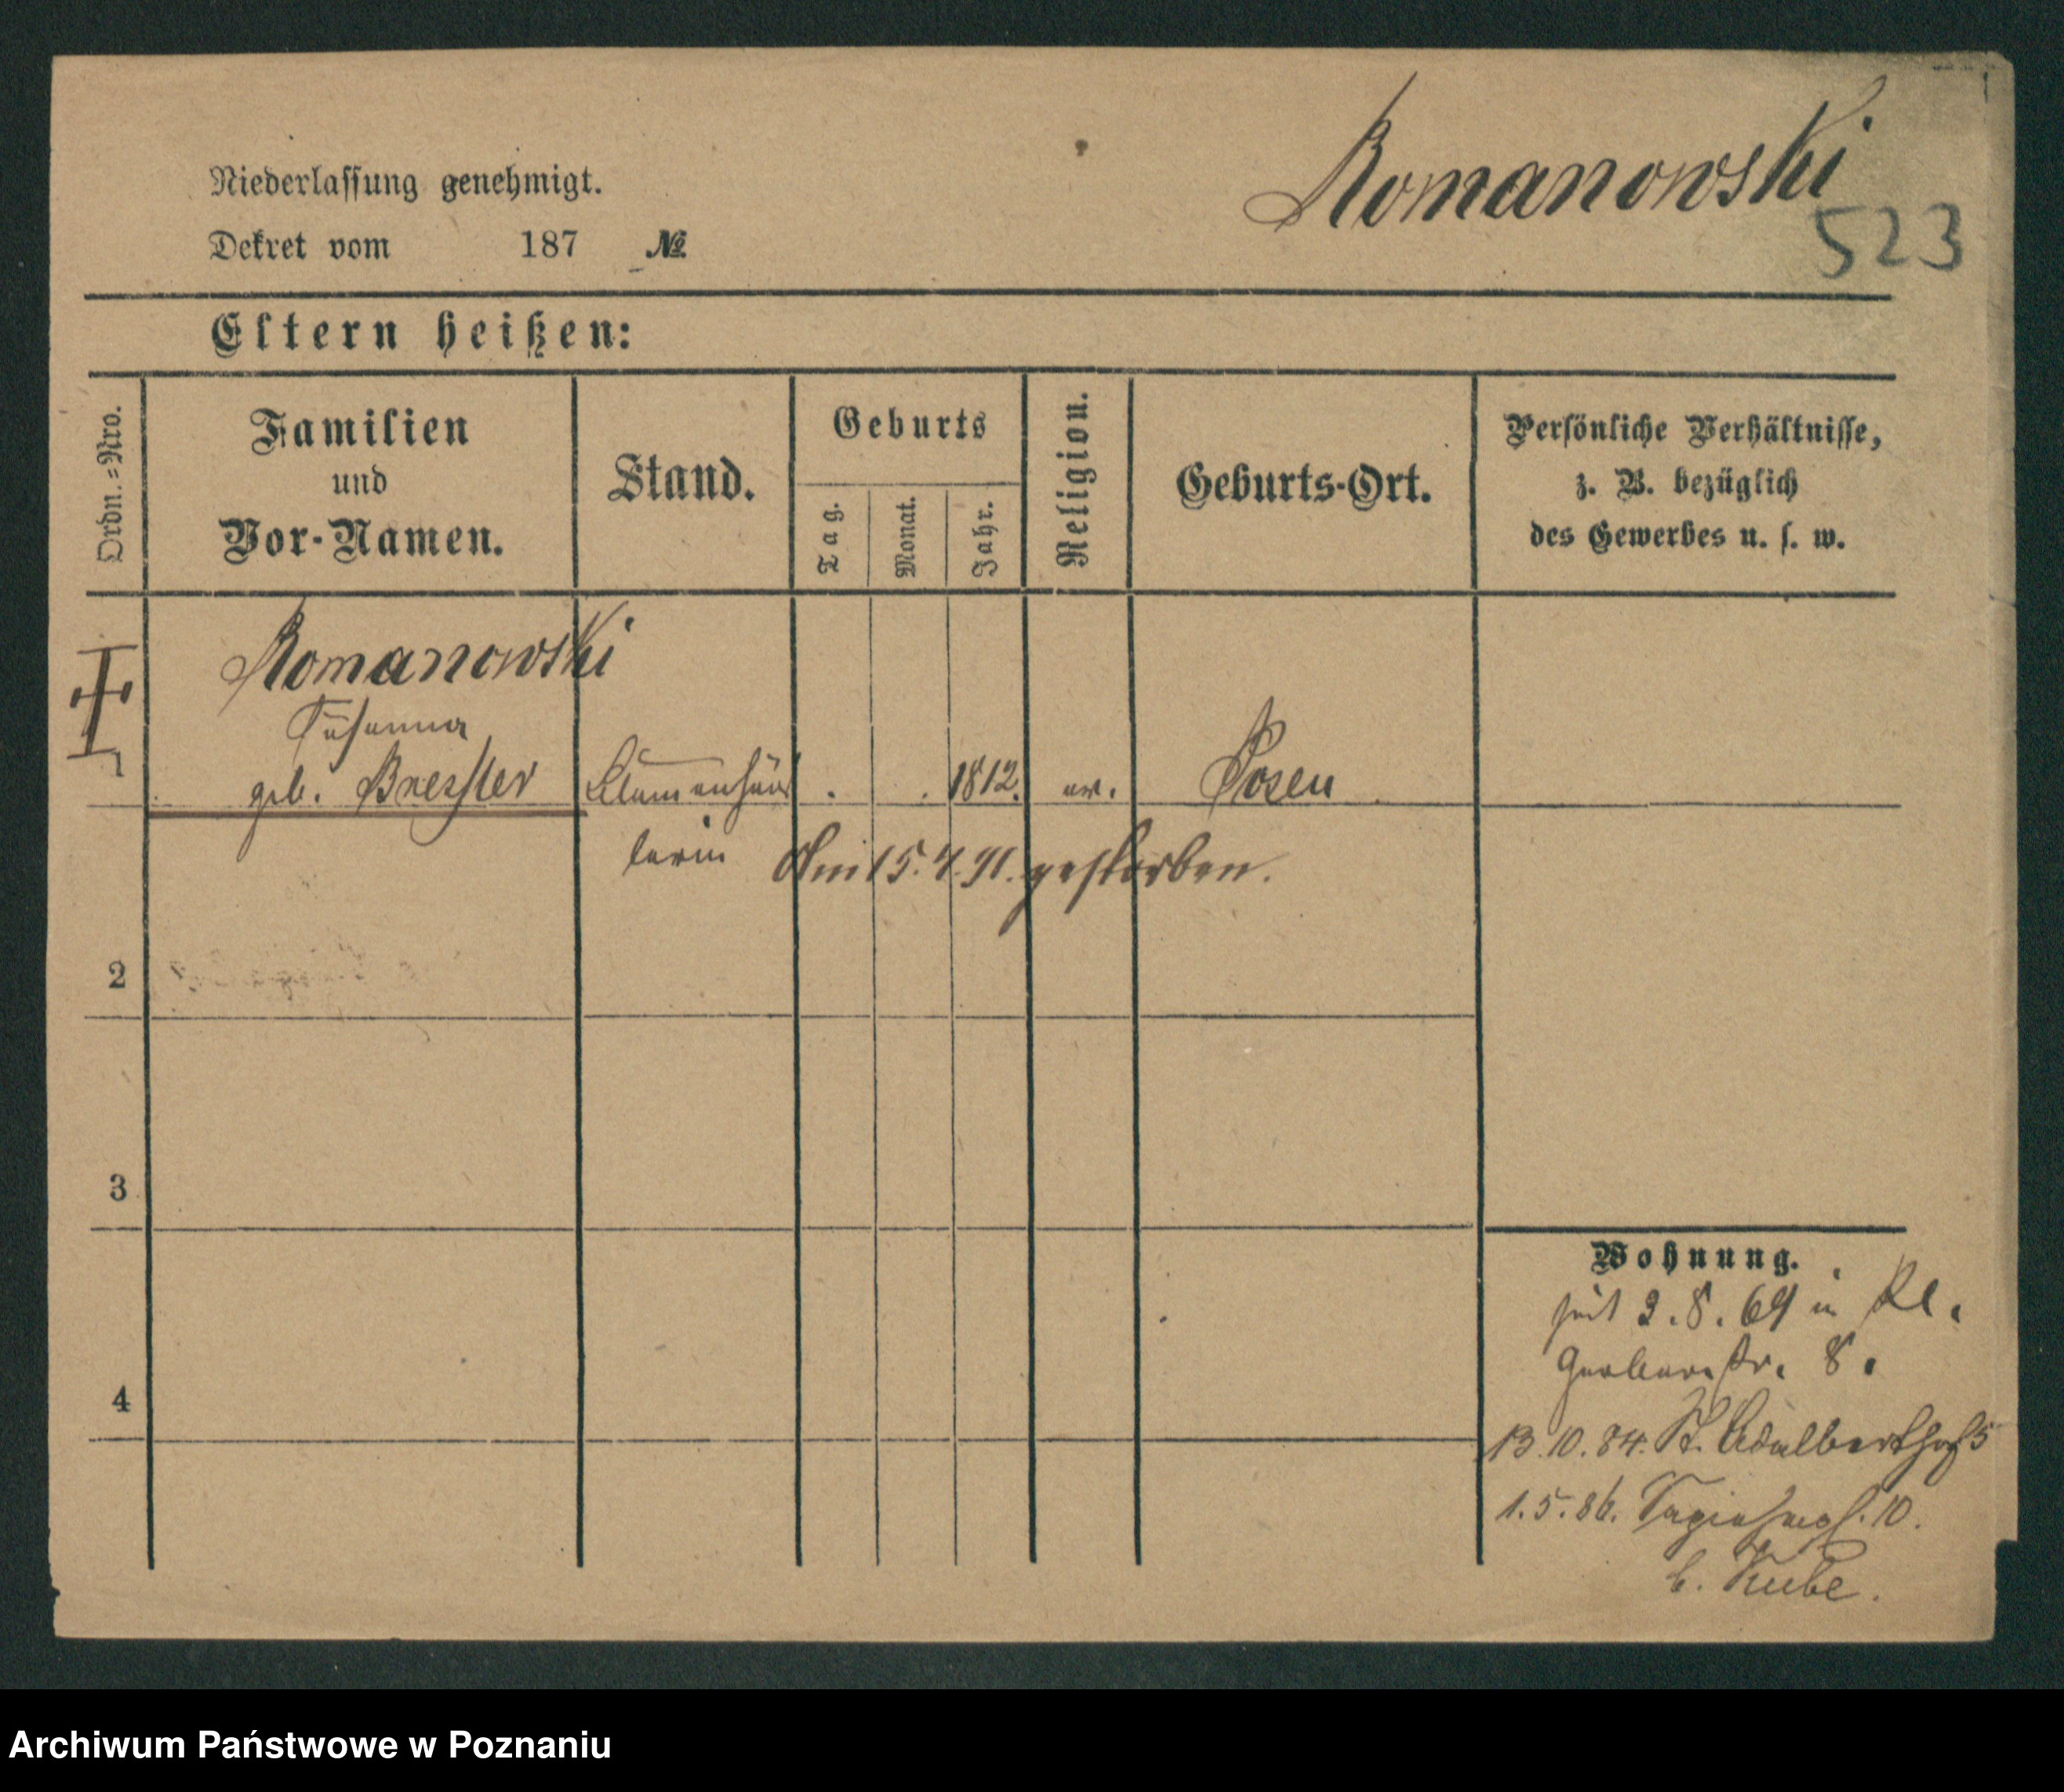 Romanowski
523
Niederlassung genehmigt.
Dekret vom 187 №
Eltern heißen:
Ordn.=Nro.
Familien
und
Vor-Namen.
Stand.
Geburts
Tag.
Monat.
Jahr.
Religion.
Geburts-Ort.
Persönliche Verhältnisse,
z. B. bezüglich
des Gewerbes u. s. w.
Romanowski
Susanna
geb. Bressler Blumenhänd 1812. ev. Posen
1
lerin Am 15. 4. 91. gestorben.
2
3
4
Wohnung.
seit 2. 8. 69 in Kl.
Gerberstr. 8.
13. 10. 84. St. Adalberthof 5
1. 5. 86. Sapiehapl. 10.
b. Kube.
Archiwum Państwowe w Poznaniu